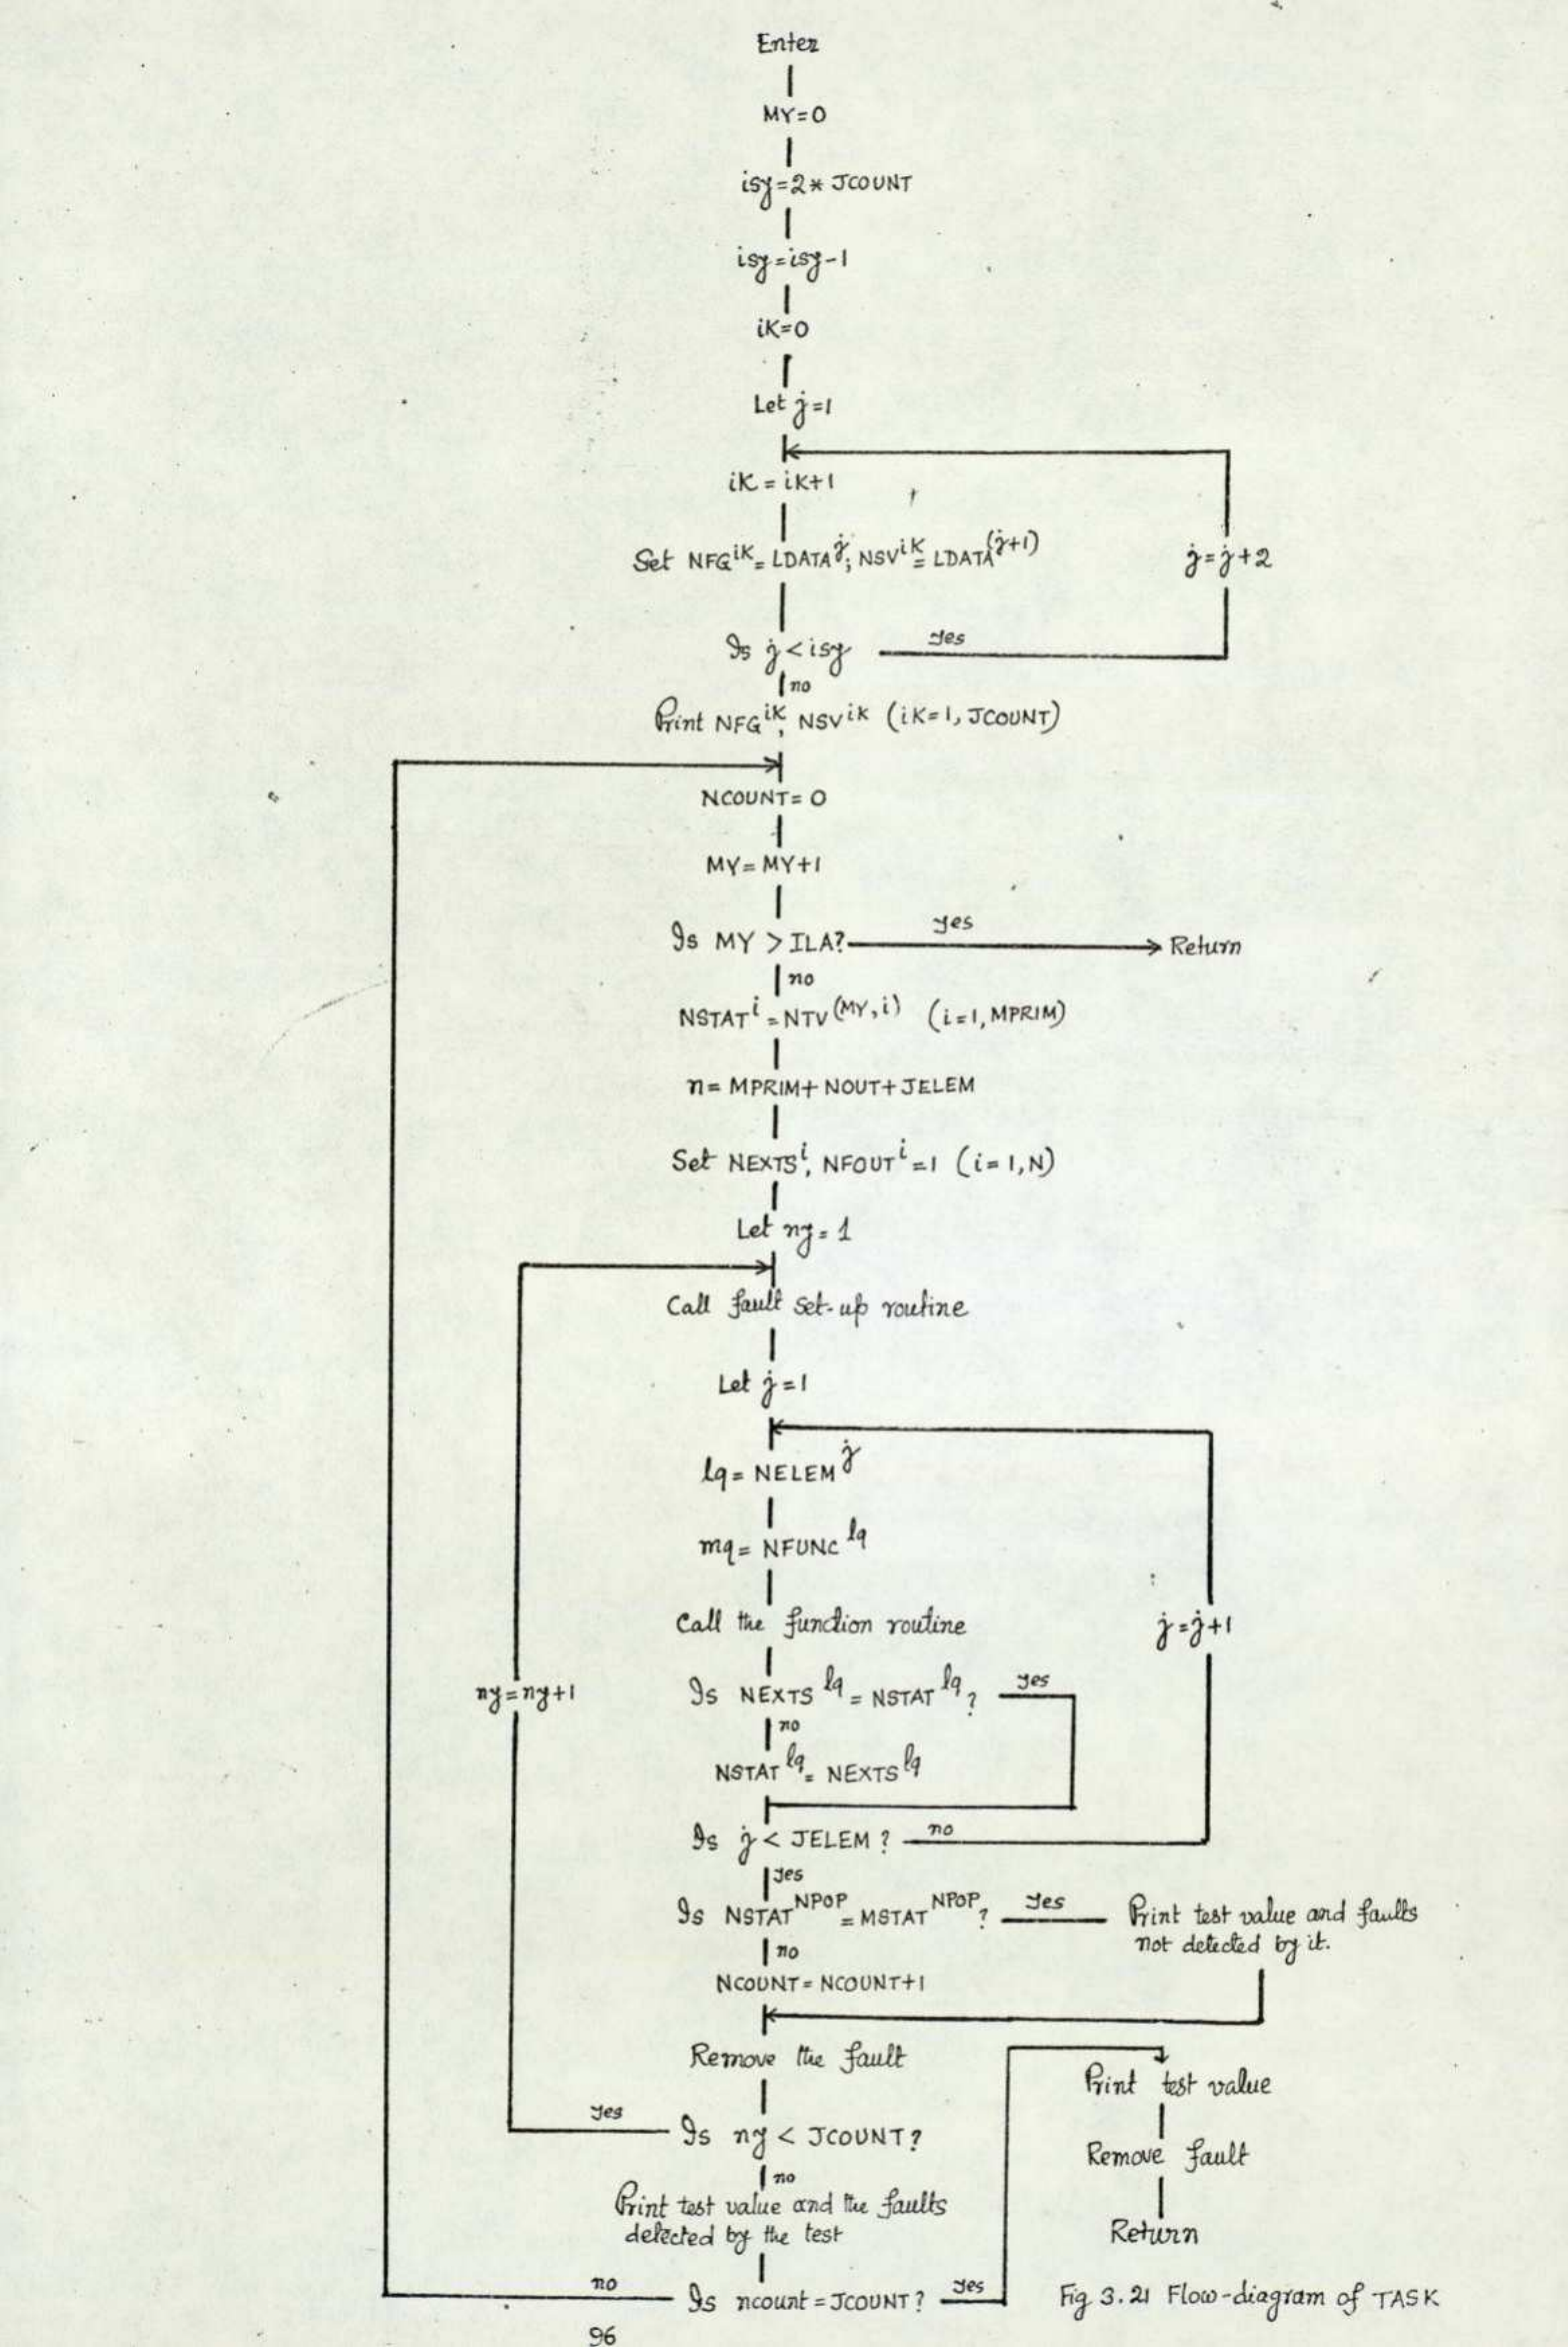 Enter
MY=0
isy=2* JCOUNT
isy=isy-1
iK=0
Let j=1
iK = iK+1
Set NFG^iK = LDATA^j; NSV^iK = LDATA^(j+1)
j=j+2
Is j<isy yes
no
Print NFG^iK, NSV^iK (iK=1, JCOUNT)
NCOUNT= 0
MY= MY+1
Is MY > ILA? yes Return
no
NSTAT^i = NTV^(MY,i) (i=1, MPRIM)
n= MPRIM+ NOUT+ JELEM
Set NEXTS^i, NFOUT^i =1 (i=1,N)
Let ny= 1
Call fault set-up routine
Let j=1
lq= NELEM^j
mq= NFUNC^lq
Call the function routine
j=j+1
ny=ny+1
Is NEXTS^lq = NSTAT^lq ? yes
no
NSTAT^lq = NEXTS^lq
Is j< JELEM ? no
yes
Is NSTAT^NPOP = MSTAT^NPOP ? yes
Print test value and faults
not detected by it.
no
NCOUNT= NCOUNT+1
Remove the fault
Is ny < JCOUNT? yes
no
Print test value and the faults
detected by the test
Is ncount = JCOUNT? yes
no
Print test value
Remove fault
Return
Fig 3.21 Flow-diagram of TASK
96